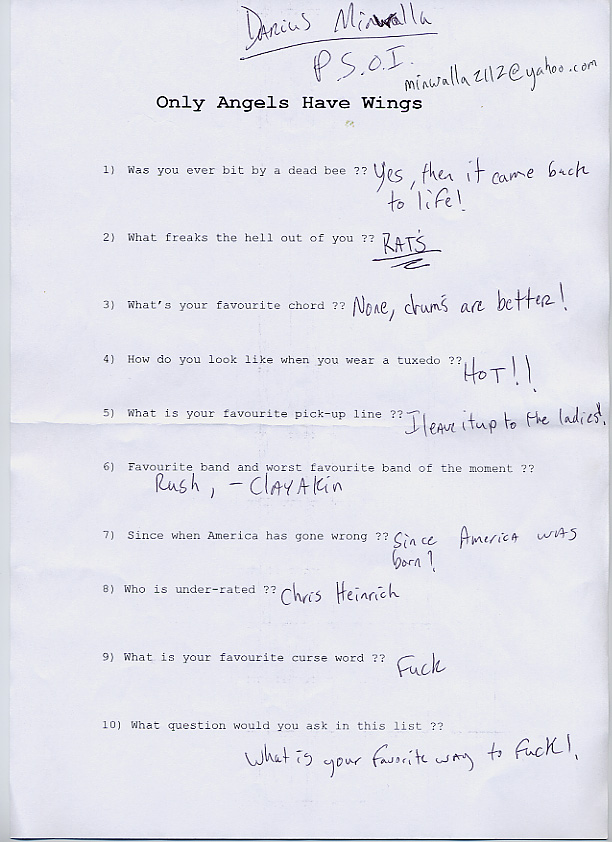 Darius Minwalla
P.S.O.I.
minwalla2112@yahoo.com
Only Angels Have Wings
1) Was you ever bit by a dead bee ?? Yes, then it came back
to life!
2) What freaks the hell out of you ?? RATS
3) What's your favourite chord ?? None, drums are better!
4) How do you look like when you wear a tuxedo ?? HOT!!
5) What is your favourite pick-up line ?? I leave it up to the ladies!
6) Favourite band and worst favourite band of the moment ??
Rush, - Clay Akin
7) Since when America has gone wrong ?? Since America was
born?
8) Who is under-rated ?? Chris Heinrich
9) What is your favourite curse word ?? Fuck
10) What question would you ask in this list ??
What is your favorite way to fuck!